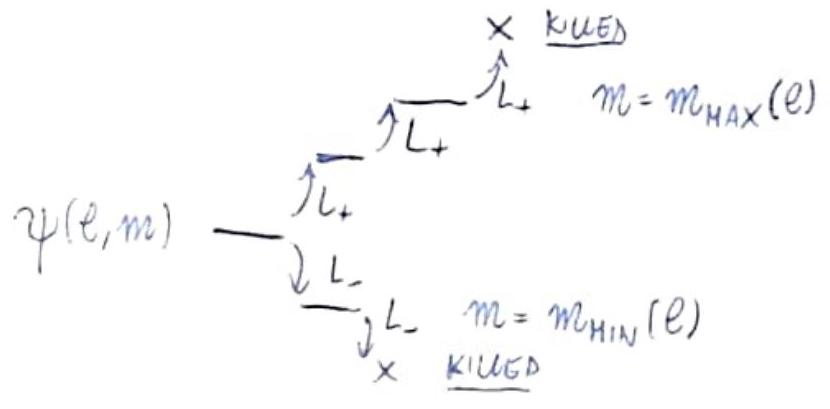 × KILLED
L₊ m = m_MAX(ℓ)
L₊
L₊
ψ(ℓ, m)
L₋
L₋ m = m_MIN(ℓ)
× KILLED